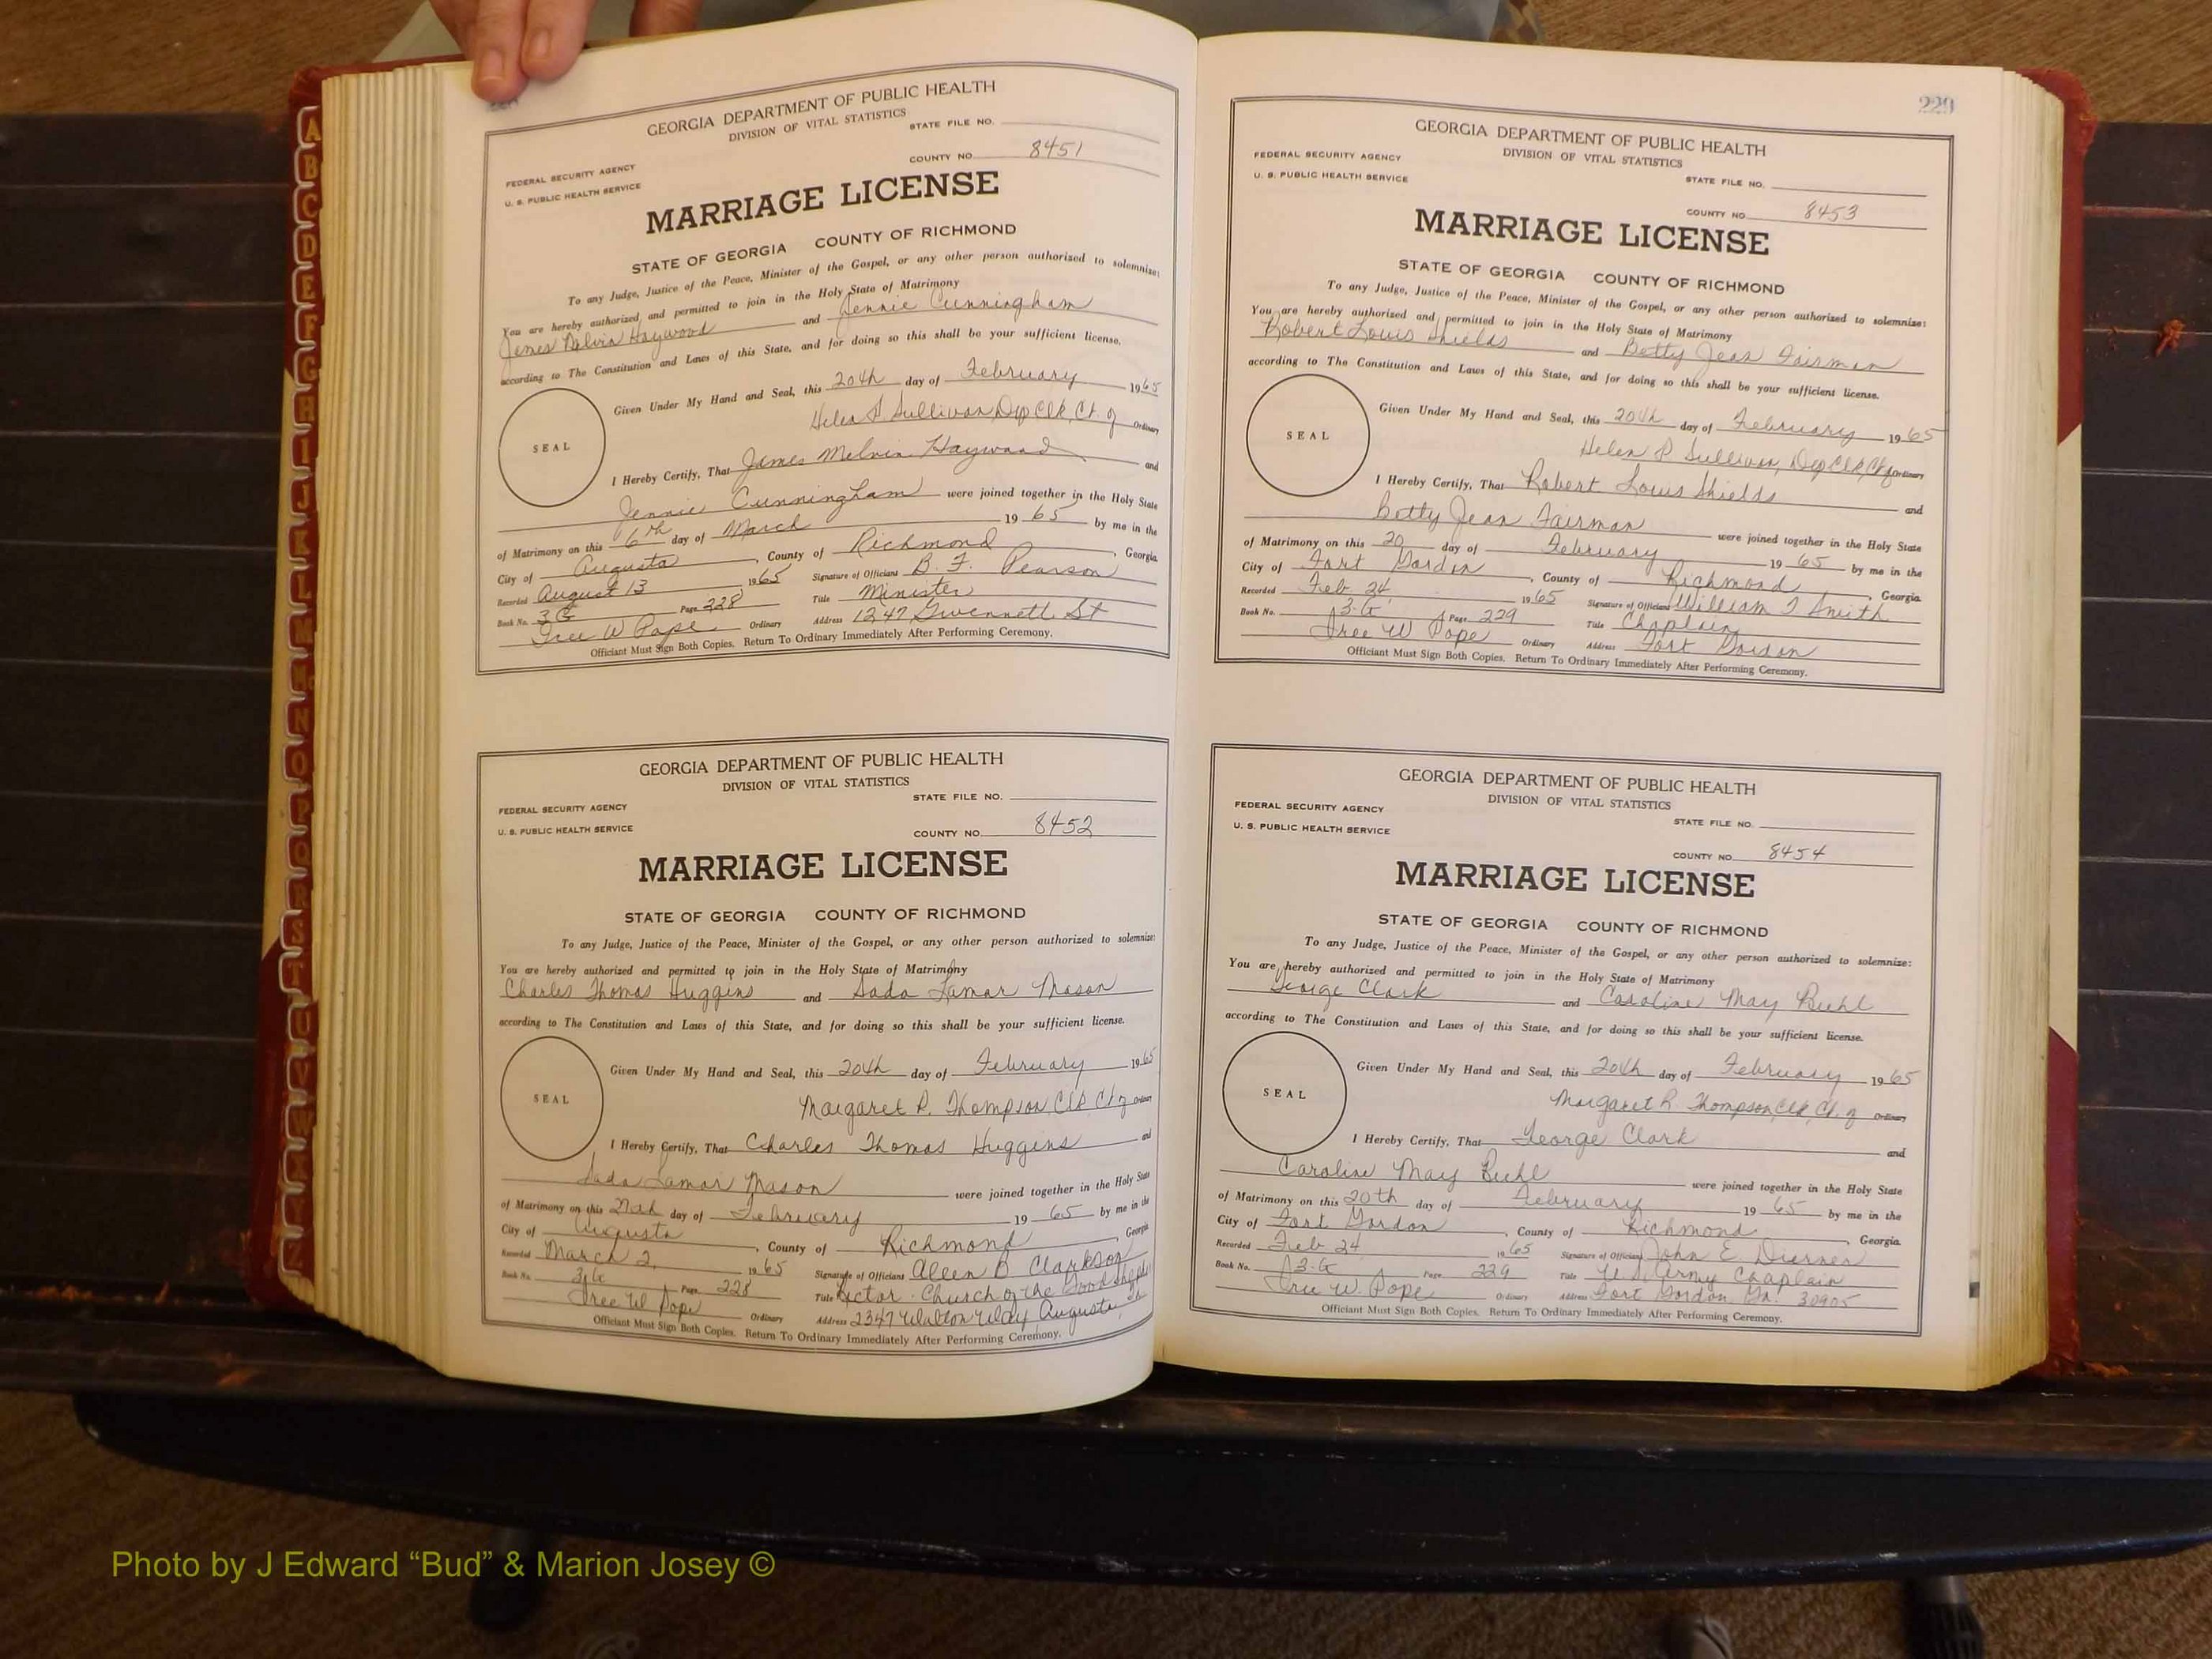 GEORGIA DEPARTMENT OF PUBLIC HEALTH
DIVISION OF VITAL STATISTICS
STATE FILE NO.
FEDERAL SECURITY AGENCY
COUNTY NO. 8451
U. S. PUBLIC HEALTH SERVICE
MARRIAGE LICENSE
STATE OF GEORGIA COUNTY OF RICHMOND
To any Judge, Justice of the Peace, Minister of the Gospel, or any other person authorized to solemnize:
You are hereby authorized and permitted to join in the Holy State of Matrimony
James Melvin Haywood and Jennie Cunningham
according to The Constitution and Laws of this State, and for doing so this shall be your sufficient license.
Given Under My Hand and Seal, this 20th day of February 1965
SEAL
Helen P Sullivan, Dep Clk, Ct. of Ordinary
I Hereby Certify, That James Melvin Haywood and
Jennie Cunningham were joined together in the Holy State
of Matrimony on this 6th day of March 19 65 by me in the
City of Augusta, County of Richmond, Georgia.
Recorded August 13 1965 Signature of Officiant B. F. Pearson
Book No. 3 G Page 228 Title Minister
Iree W Pope Ordinary Address 1247 Gwennett St
Officiant Must Sign Both Copies. Return To Ordinary Immediately After Performing Ceremony.
GEORGIA DEPARTMENT OF PUBLIC HEALTH
DIVISION OF VITAL STATISTICS
STATE FILE NO.
FEDERAL SECURITY AGENCY
U. S. PUBLIC HEALTH SERVICE
COUNTY NO. 8452
MARRIAGE LICENSE
STATE OF GEORGIA COUNTY OF RICHMOND
To any Judge, Justice of the Peace, Minister of the Gospel, or any other person authorized to solemnize:
You are hereby authorized and permitted to join in the Holy State of Matrimony
Charles Thomas Huggins and Sada Lamar Mason
according to The Constitution and Laws of this State, and for doing so this shall be your sufficient license.
Given Under My Hand and Seal, this 20th day of February 1965
SEAL
Margaret R. Thompson, Clk, Ct of Ordinary
I Hereby Certify, That Charles Thomas Huggins and
Sada Lamar Mason were joined together in the Holy State
of Matrimony on this 27th day of February 19 65 by me in the
City of Augusta, County of Richmond, Georgia
Recorded March 2, 1965 Signature of Officiant Allen B. Clarkson
Book No. 3-G Page 228 Title Rector - Church of the Good Shepherd
Iree W Pope Ordinary Address 2347 Walton Way, Augusta, Ga
Officiant Must Sign Both Copies. Return To Ordinary Immediately After Performing Ceremony.
229
GEORGIA DEPARTMENT OF PUBLIC HEALTH
DIVISION OF VITAL STATISTICS
FEDERAL SECURITY AGENCY
U. S. PUBLIC HEALTH SERVICE
STATE FILE NO.
COUNTY NO. 8453
MARRIAGE LICENSE
STATE OF GEORGIA COUNTY OF RICHMOND
To any Judge, Justice of the Peace, Minister of the Gospel, or any other person authorized to solemnize:
You are hereby authorized and permitted to join in the Holy State of Matrimony
Robert Louis Shields and Betty Jean Fairman
according to The Constitution and Laws of this State, and for doing so this shall be your sufficient license.
Given Under My Hand and Seal, this 20th day of February 1965
SEAL
Helen P Sullivan, Dep Clk, Ct of Ordinary
I Hereby Certify, That Robert Louis Shields and
Betty Jean Fairman were joined together in the Holy State
of Matrimony on this 20 day of February 19 65 by me in the
City of Fort Gordon, County of Richmond, Georgia.
Recorded Feb 24, 1965 Signature of Officiant William J Smith
Book No. 3-G Page 229 Title Chaplain
Iree W Pope Ordinary Address Fort Gordon
Officiant Must Sign Both Copies. Return To Ordinary Immediately After Performing Ceremony.
GEORGIA DEPARTMENT OF PUBLIC HEALTH
DIVISION OF VITAL STATISTICS
FEDERAL SECURITY AGENCY
STATE FILE NO.
U. S. PUBLIC HEALTH SERVICE
COUNTY NO. 8454
MARRIAGE LICENSE
STATE OF GEORGIA COUNTY OF RICHMOND
To any Judge, Justice of the Peace, Minister of the Gospel, or any other person authorized to solemnize:
You are hereby authorized and permitted to join in the Holy State of Matrimony
George Clark and Caroline May Biehl
according to The Constitution and Laws of this State, and for doing so this shall be your sufficient license.
Given Under My Hand and Seal, this 20th day of February 1965
SEAL
Margaret R. Thompson, Clk, Ct. of Ordinary
I Hereby Certify, That George Clark and
Caroline May Biehl were joined together in the Holy State
of Matrimony on this 20th day of February 19 65 by me in the
City of Fort Gordon, County of Richmond, Georgia.
Recorded Feb 24 1965 Signature of Officiant John E.
Book No. 3-G Page 229 Title U.S. Army Chaplain
Iree W. Pope Ordinary Address Fort Gordon, Ga. 30905
Officiant Must Sign Both Copies. Return To Ordinary Immediately After Performing Ceremony.
A
B
C
D
E
F
G
H
I
J
K
L
M
N
O
P
Q
R
S
T
U
V
W
X
Y
Z
Photo by J Edward “Bud” & Marion Josey ©